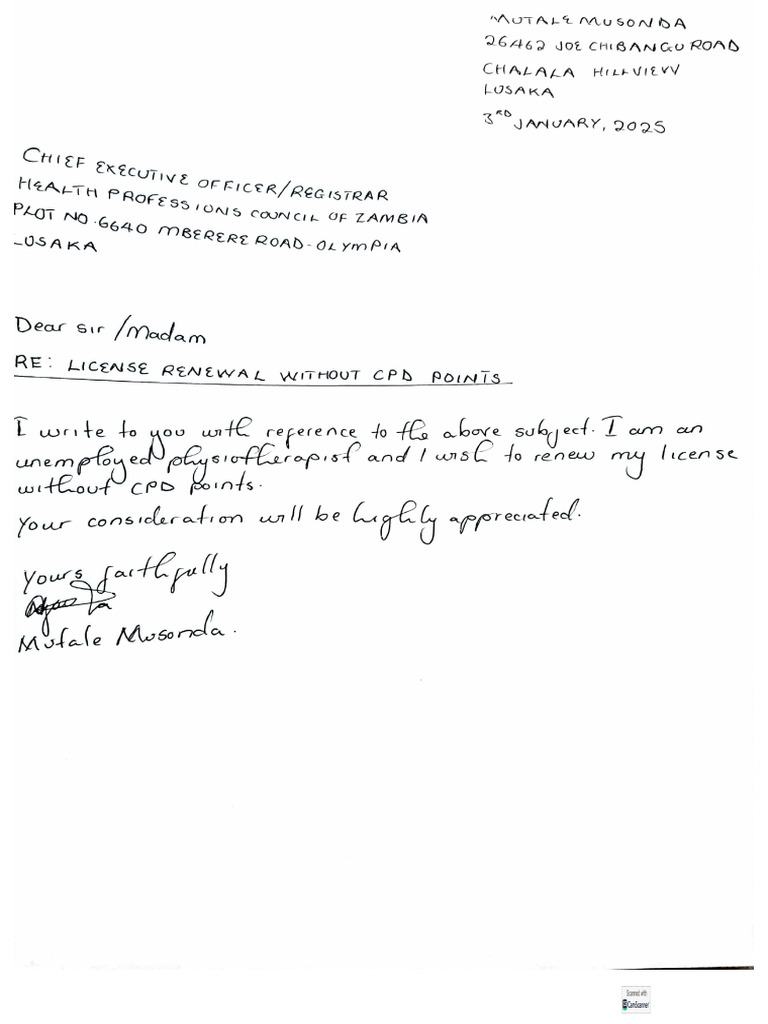 MUTALE MUSONDA
26462 JOE CHIBANGU ROAD
CHALALA HILLVIEW
LUSAKA
3RD JANUARY, 2025
CHIEF EXECUTIVE OFFICER/REGISTRAR
HEALTH PROFESSIONS COUNCIL OF ZAMBIA
PLOT NO. 6640 MBERERE ROAD-OLYMPIA
LUSAKA
Dear Sir/Madam
RE: LICENSE RENEWAL WITHOUT CPD POINTS
I write to you with reference to the above subject. I am an
unemployed physiotherapist and I wish to renew my license
without CPD points.
Your consideration will be highly appreciated.
Yours faithfully
Mutale Musonda.
Scanned with
CamScanner